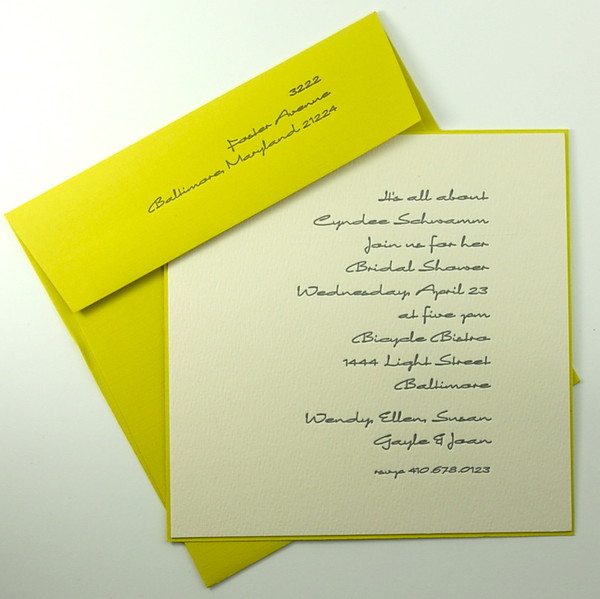 3222
Foster Avenue
Baltimore, Maryland 21224
It's all about
Cyndee Schwamm
Join us for her
Bridal Shower
Wednesday, April 23
at five pm
Bicycle Bistro
1444 Light Street
Baltimore
Wendy, Ellen, Susan
Gayle & Joan
rsvp 410.678.0123